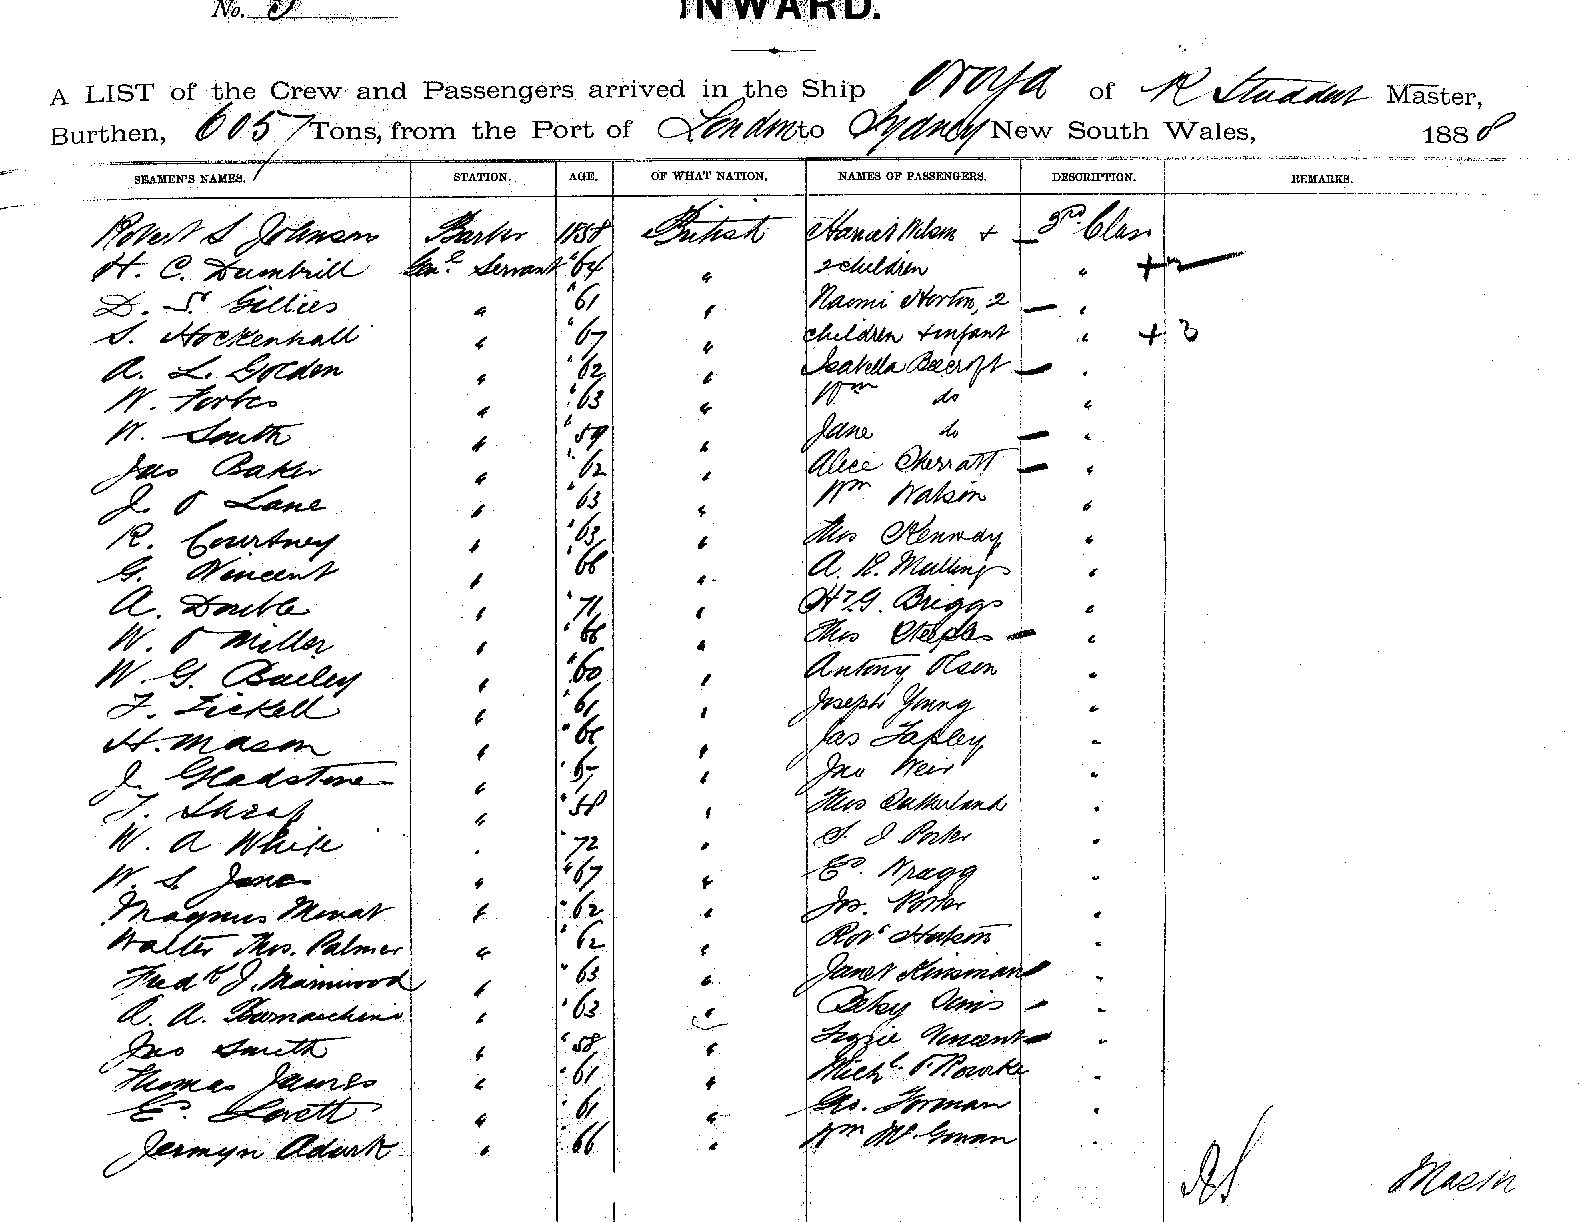 No. 5
INWARD.
A LIST of the Crew and Passengers arrived in the Ship Oroya of R Studdert Master,
Burthen, 6057 Tons, from the Port of London to Sydney New South Wales, 1888
SEAMEN'S NAMES. STATION. AGE. OF WHAT NATION. NAMES OF PASSENGERS. DESCRIPTION. REMARKS.
Robert S Johnson 1858 British Harriet Nelson + 3rd Class
H. C. Dumbrill Genl Servant "64 " 2 children " + 2
D. S. Gillies " "61 " Naomi Horton, 2 "
S. Hockenhall " "67 " children + infant " + 3
A. L. Golden " "62 " Isabella Beecroft "
W. Forbes " "63 " Wm do "
W. South " "59 " Jane do "
Jas Baker " "62 " Alice Sherratt "
J. O Lane " "63 " Wm Watson "
R. Courtney " "63 " Thos Kennedy "
G. Vincent " "66 " A. R. Mullings "
A. Double " "71 " H. G. Briggs "
W. O Miller " "66 " "
W. G. Bailey " "60 " Antony Olsen "
F. Tickell " "61 " Joseph Young "
H. Mason " " " Jas Tapley "
J. Gladstone " " " Jno Weir "
T. Sharp " "58 " Thos Sutherland "
W. A White " "72 " S. J Porter "
W. S. Jones " "67 " Ed. Wragg "
Magnus Mouat " "62 " Jos. Porter "
Walter Thos. Palmer " "62 " Robt "
Fredk J. " "63 " Janet Kinsman "
A. A. " "63 " Betsy "
Jas Smith " "58 " Lizzie Vincent "
Thomas James " "61 " Michl O'Rourke "
E. Lovett " "61 " Geo. Forman "
Jermyn " "66 " Wm McGowan "
Mason